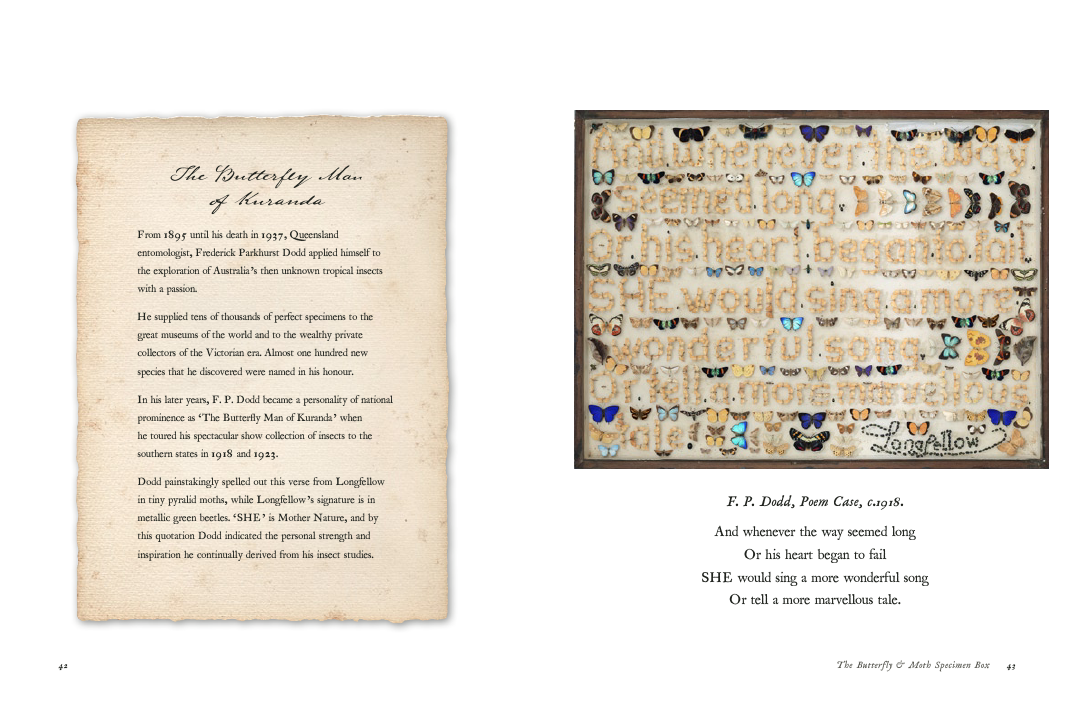 The Butterfly Man
of Kuranda
From 1895 until his death in 1937, Queensland
entomologist, Frederick Parkhurst Dodd applied himself to
the exploration of Australia's then unknown tropical insects
with a passion.
He supplied tens of thousands of perfect specimens to the
great museums of the world and to the wealthy private
collectors of the Victorian era. Almost one hundred new
species that he discovered were named in his honour.
In his later years, F. P. Dodd became a personality of national
prominence as ‘The Butterfly Man of Kuranda’ when
he toured his spectacular show collection of insects to the
southern states in 1918 and 1923.
Dodd painstakingly spelled out this verse from Longfellow
in tiny pyralid moths, while Longfellow's signature is in
metallic green beetles. ‘SHE’ is Mother Nature, and by
this quotation Dodd indicated the personal strength and
inspiration he continually derived from his insect studies.
42
And whenever the way
Seemed long
or his heart began to fail
SHE would sing a more
wonderful song
or tell a more marvellous
tale
Longfellow
F. P. Dodd, Poem Case, c.1918.
And whenever the way seemed long
Or his heart began to fail
SHE would sing a more wonderful song
Or tell a more marvellous tale.
The Butterfly & Moth Specimen Box 43